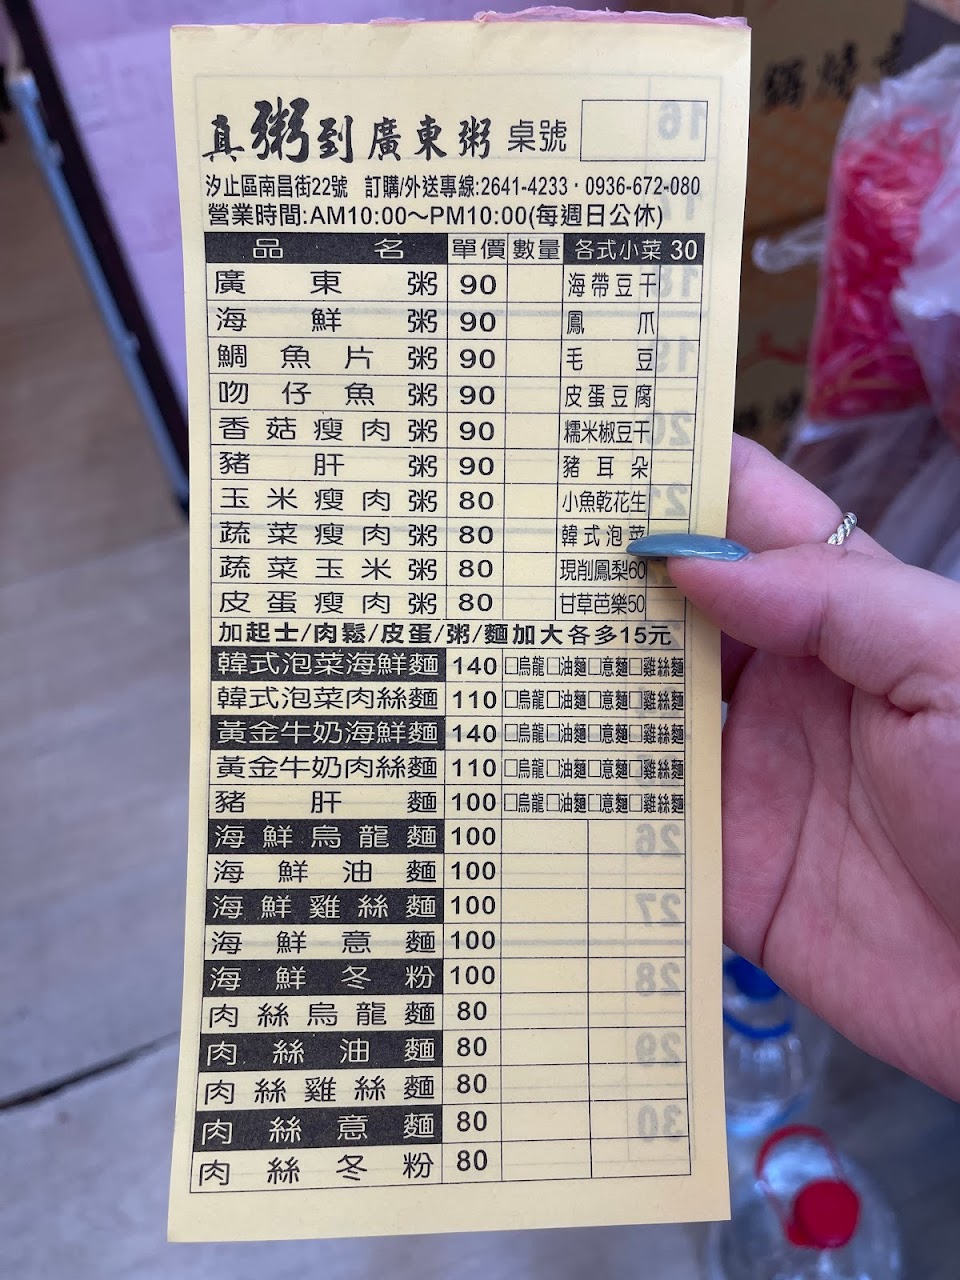 真粥到廣東粥 桌號
汐止區南昌街22號 訂購/外送專線:2641-4233·0936-672-080
營業時間:AM10:00～PM10:00(每週日公休)
品名 單價 數量 各式小菜 30
廣東粥 90 海帶豆干
海鮮粥 90 鳳爪
鯛魚片粥 90 毛豆
吻仔魚粥 90 皮蛋豆腐
香菇瘦肉粥 90 糯米椒豆干
豬肝粥 90 豬耳朵
玉米瘦肉粥 80 小魚乾花生
蔬菜瘦肉粥 80 韓式泡菜
蔬菜玉米粥 80 現削鳳梨60
皮蛋瘦肉粥 80 甘草芭樂50
加起士/肉鬆/皮蛋/粥/麵加大各多15元
韓式泡菜海鮮麵 140 □烏龍□油麵□意麵□雞絲麵
韓式泡菜肉絲麵 110 □烏龍□油麵□意麵□雞絲麵
黃金牛奶海鮮麵 140 □烏龍□油麵□意麵□雞絲麵
黃金牛奶肉絲麵 110 □烏龍□油麵□意麵□雞絲麵
豬肝麵 100 □烏龍□油麵□意麵□雞絲麵
海鮮烏龍麵 100
海鮮油麵 100
海鮮雞絲麵 100
海鮮意麵 100
海鮮冬粉 100
肉絲烏龍麵 80
肉絲油麵 80
肉絲雞絲麵 80
肉絲意麵 80
肉絲冬粉 80